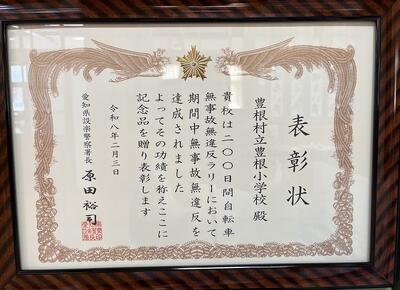 表彰状
豊根村立豊根小学校 殿
貴校は二〇〇日間自転車
無事故無違反ラリーにおいて
期間中無事故無違反を
達成されました
よってその功績を称えここに
記念品を贈り表彰します
令和八年二月三日
愛知県設楽警察署長 原田裕司